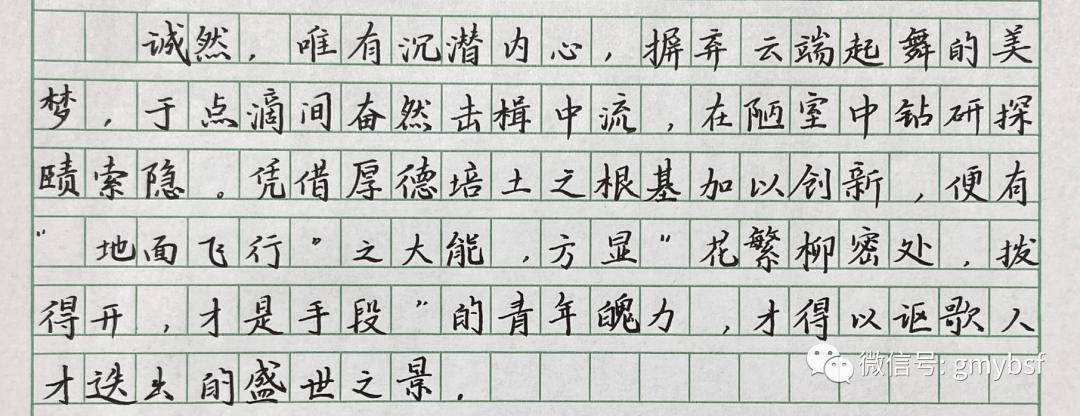 诚然，唯有沉潜内心，摒弃云端起舞的美
梦，于点滴间奋然击楫中流，在陋室中钻研探
赜索隐。凭借厚德培土之根基加以创新，便有
"地面飞行"之大能，方显"花繁柳密处，拨
得开，才是手段"的青年魄力，才得以讴歌人
才迭出的盛世之景。
微信号: gmybsf